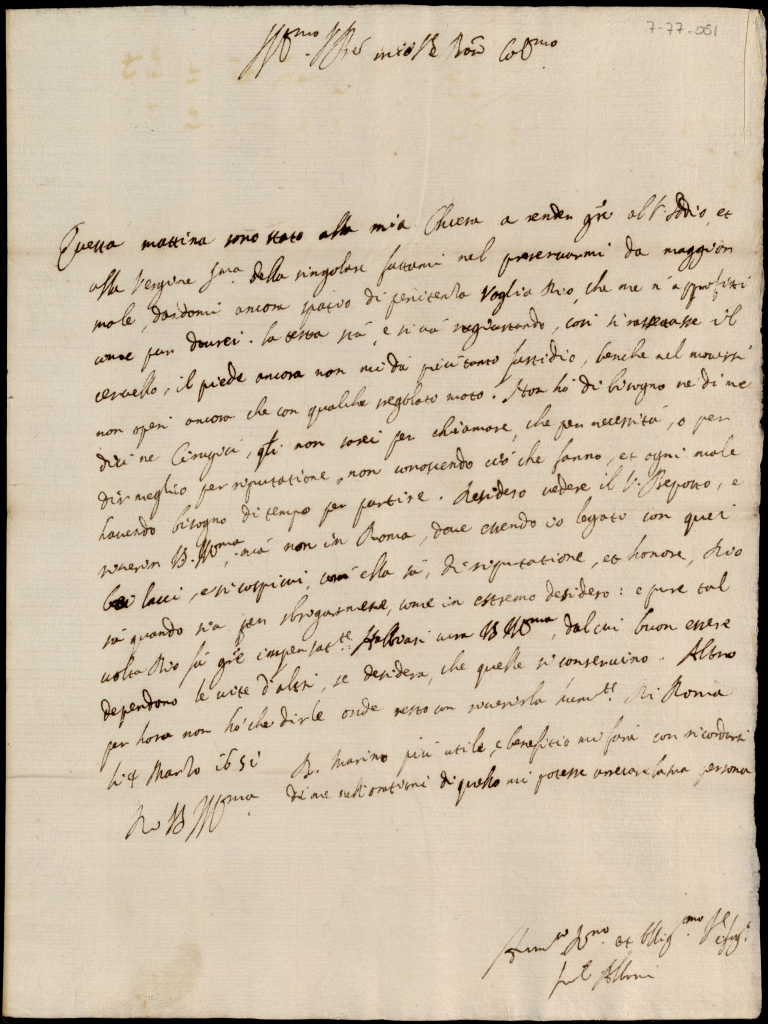 7-77-051
Ill.mo Sig.re mio Sig.re Pron Col.mo
Questa mattina sono stato alla mia Chiesa a render gr.e al S. Iddio, et
alla Vergine S.ma della singolare fattami nel preservarmi da maggior
male, dandomi ancora spatio di penitenza Voglia Dio, che me n'approfitti
come pur dovrei. la testa stà, e si và regiustando, così si rassettasse il
cervello, il piede ancora non mi dà più tanto fastidio, benche nel moversi
non operi ancora che con qualche regolato moto. Non hò di bisogno ne di me
dici ne Cirugici, q.li non sarei per chiamare, che per necessità, o per
dir meglio per riputatione, non conoscendo ciò che fanno, et ogni male
havendo bisogno di tempo per partire. Desidero vedere il S. Preposto, e
riverir V.S. Ill.ma, mà non in Roma, dove essendo io legato con quei
lacci, e si cospicui, com'ella sà, di riputatione, et honore, Dio
sà quando sia per sbrigarmene, come in estremo desidero: e pure tal
volta Dio fà gr.e impensat.te V.S. Ill.ma, dal cui buon essere
dependono le vite d'altri, se desidera, che quelle si conservino. Altro
per hora non hò che dirle onde resto con riverirla hum.te Di Roma
li 4 Marzo 1651
P. Marino più utile, e benefitio mi farà con ricordarsi
di me nell'orationi di quello mi potesse arrecare la sua persona
Di V.S. Ill.ma
Hum.o Dev.mo et Oblig.mo
Albani